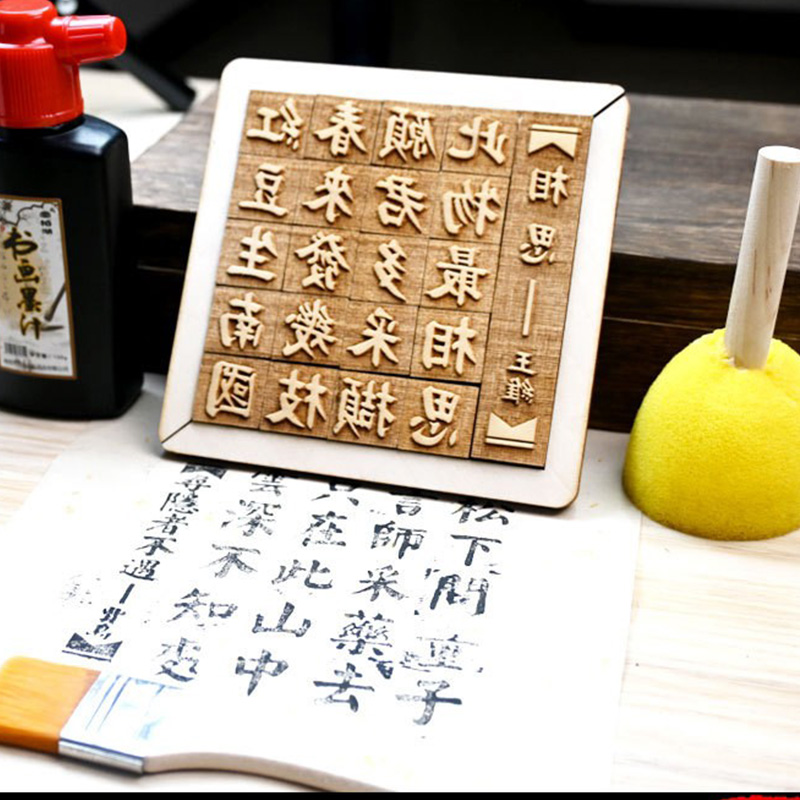 书画墨汁
相思—王維
紅豆生南國
春來發幾枝
願君多采擷
此物最相思
松下問童子
言師采藥去
只在此山中
雲深不知處
尋隱者不遇—賈島